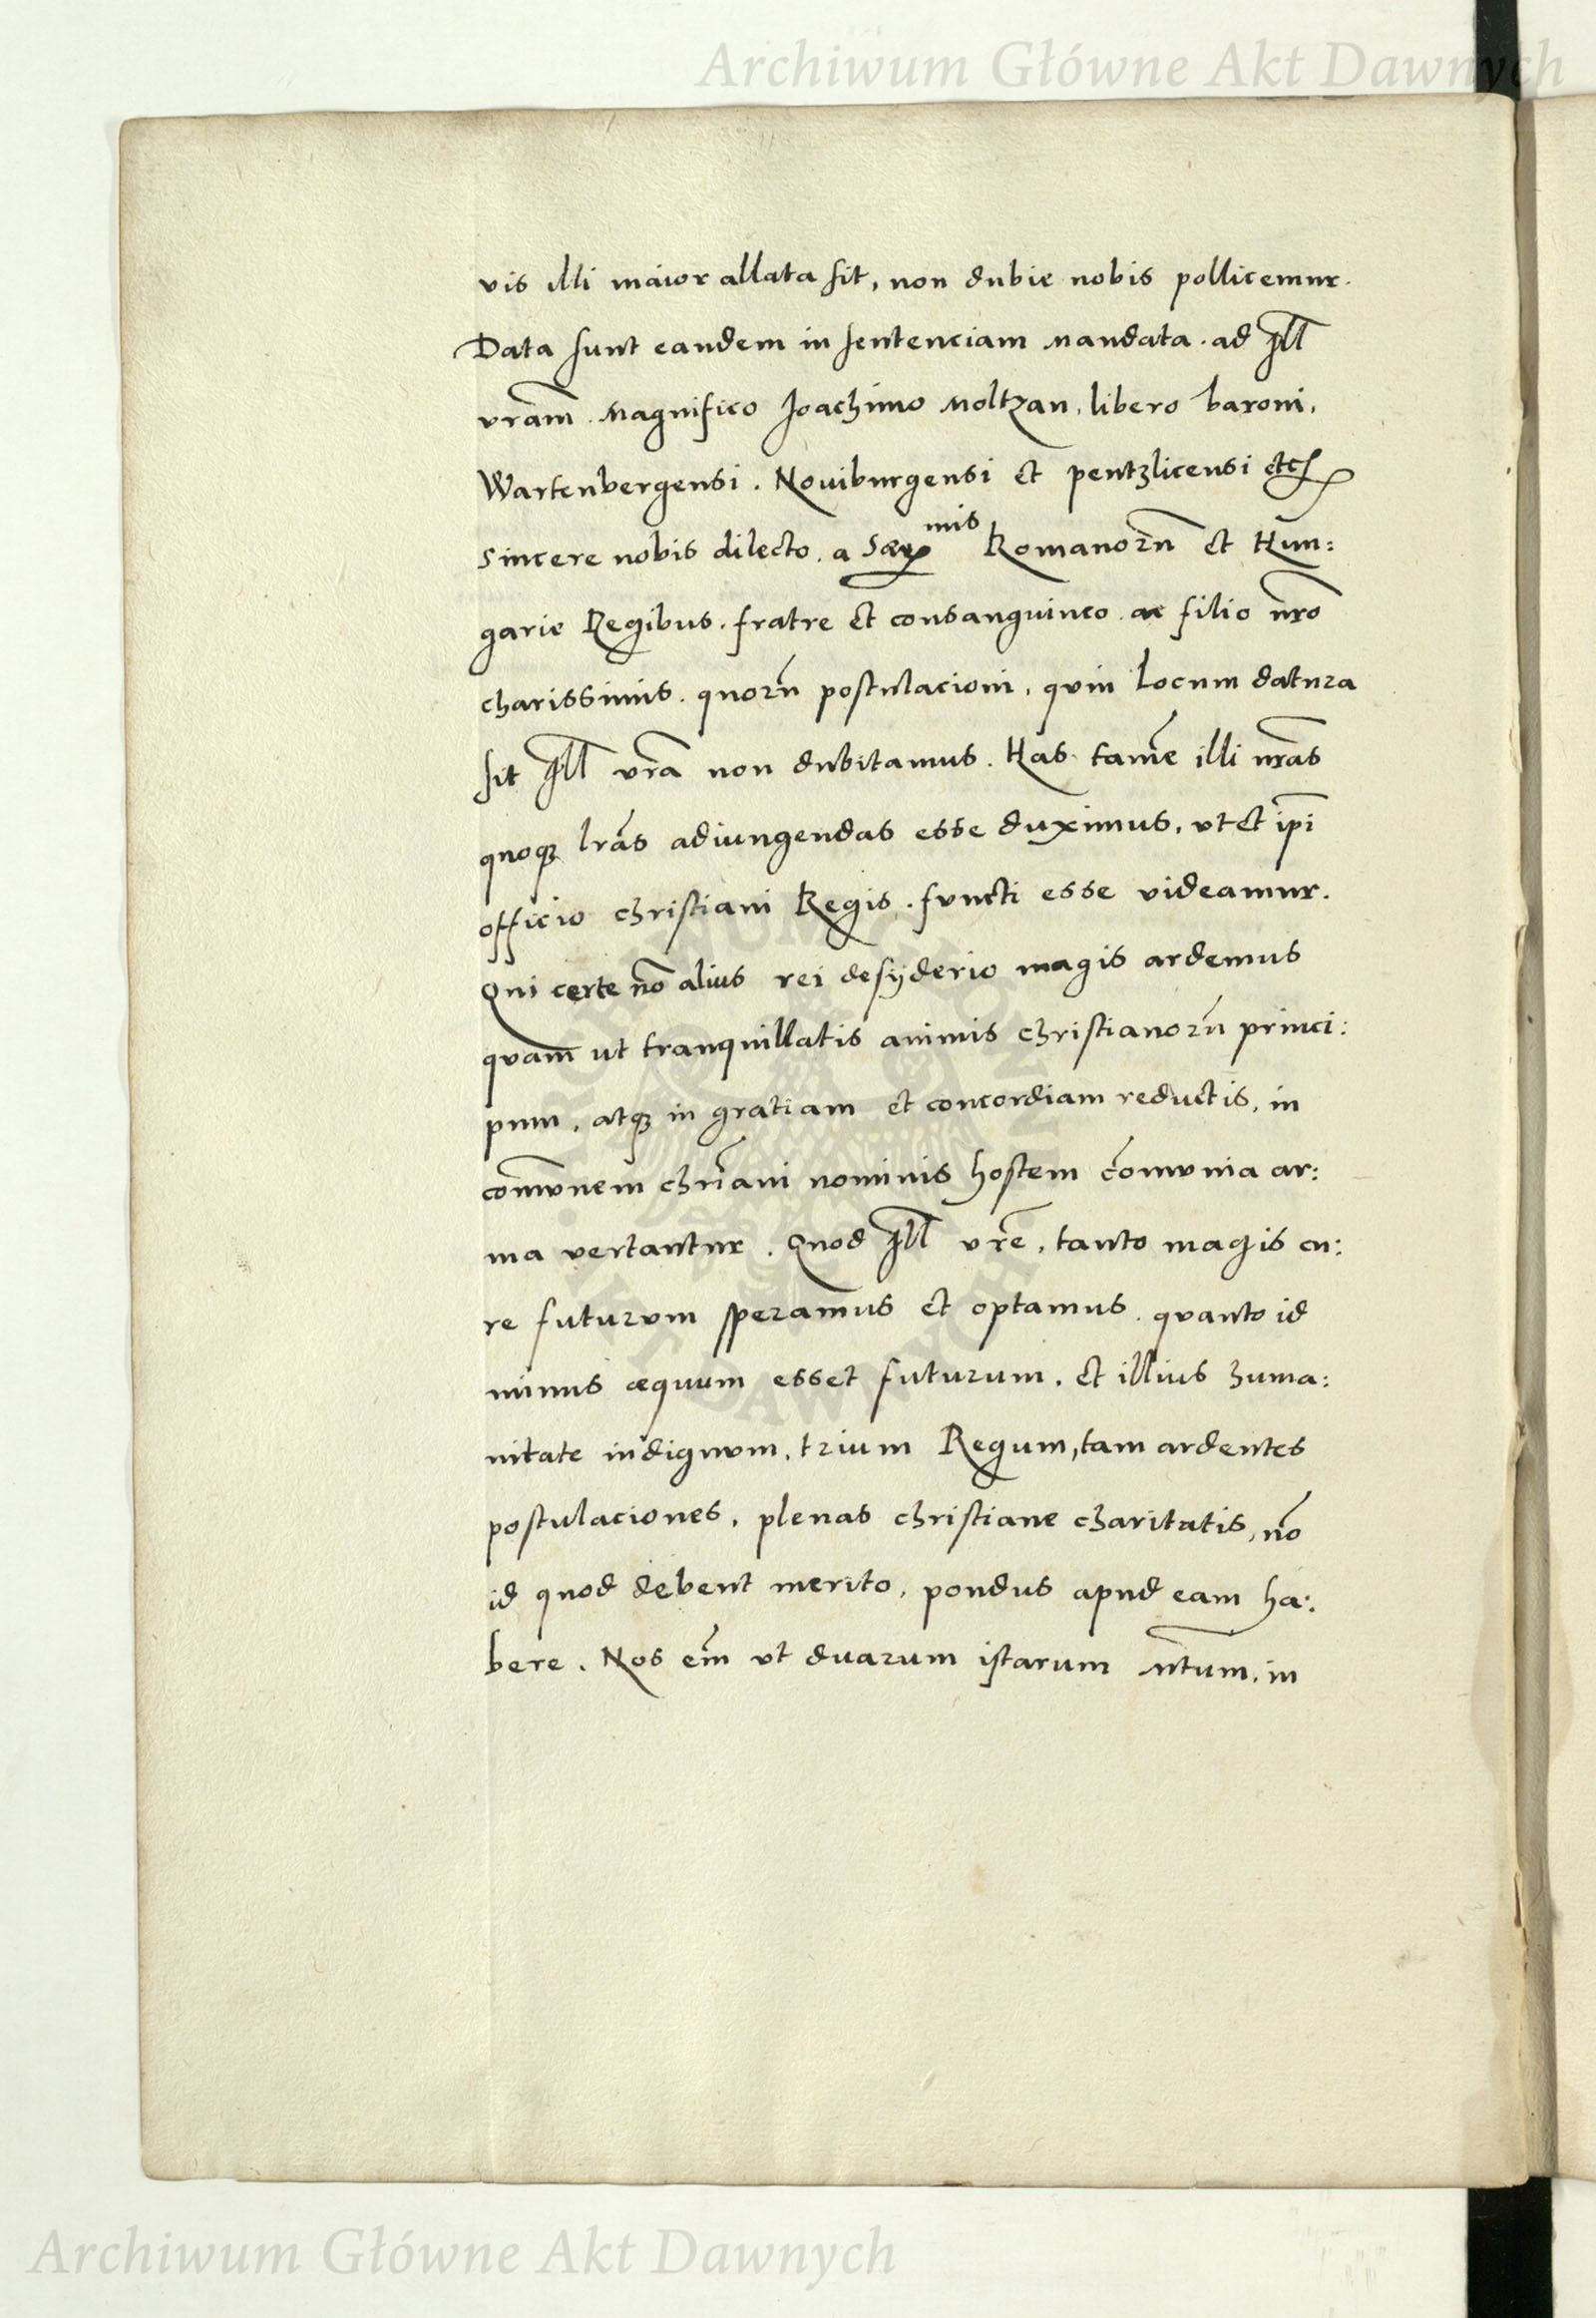 Archiwum Główne Akt Dawnych
vis illi maior allata sit, non dubie nobis pollicemur.
Data sunt eandem in sentenciam mandata. ad Ill
vram̄. Magnifico Joachimo Moltzan, libero baroni,
Wartenbergensi. Noviburgensi et pentzlicensi etc
sincere nobis dilecto. a Ser mis Romanorū et Hun:
garie Regibus. fratre et consanguineo ac filio nr̄o
charissimis. quorū postulacioni, quin Locum datura
sit Ill vr̄a non dubitamus. Has tamē illi nrās
quoqȝ lrās adiungendas esse duximus, ut et ipī
officio christiani Regis. functi esse videamur.
Qui certe nō alius rei desyderio magis ardemus
quam ut tranquillatis animis christianorū princi:
pum, atqȝ in gratiam et concordiam reductis, in
com̄unem chrīani nominis hostem com̄unia ar:
ma vertantur. Quod Ill vrē, tanto magis cu:
re futurum speramus et optamus. quanto id
minus æquum esset futurum. et illius huma:
nitate indignum, trium Regum, tam ardentes
postulaciones, plenas christiane charitatis, nō
id quod debent merito, pondus apud eam ha:
bere. Nos em̄ ut duarum istarum Mtum. in
ARCHIWUM GŁÓWNE AKT DAWNYCH
Archiwum Główne Akt Dawnych